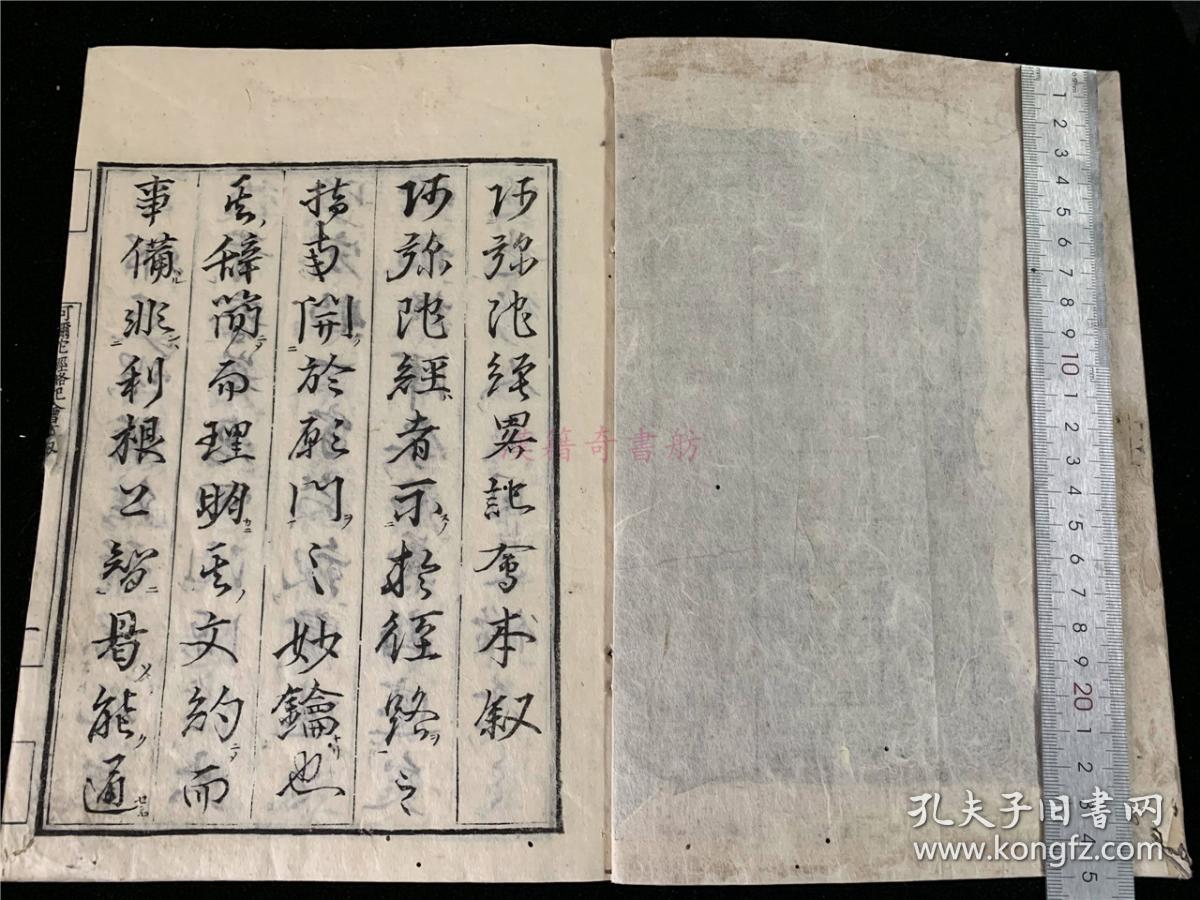 阿弥陀經畧記會本叙
阿弥陀經者示於徑路之
指南開於願門之妙鑰也
其辞簡而理明其文約而
事備非利根上智曷能通
阿彌陀經略記會本叙
漢籍奇書舫
孔夫子旧书网
www.kongfz.com
1 2 3 4 5 6 7 8 9 10 1 2 3 4 5 6 7 8 9 20 1 2 3 4 5